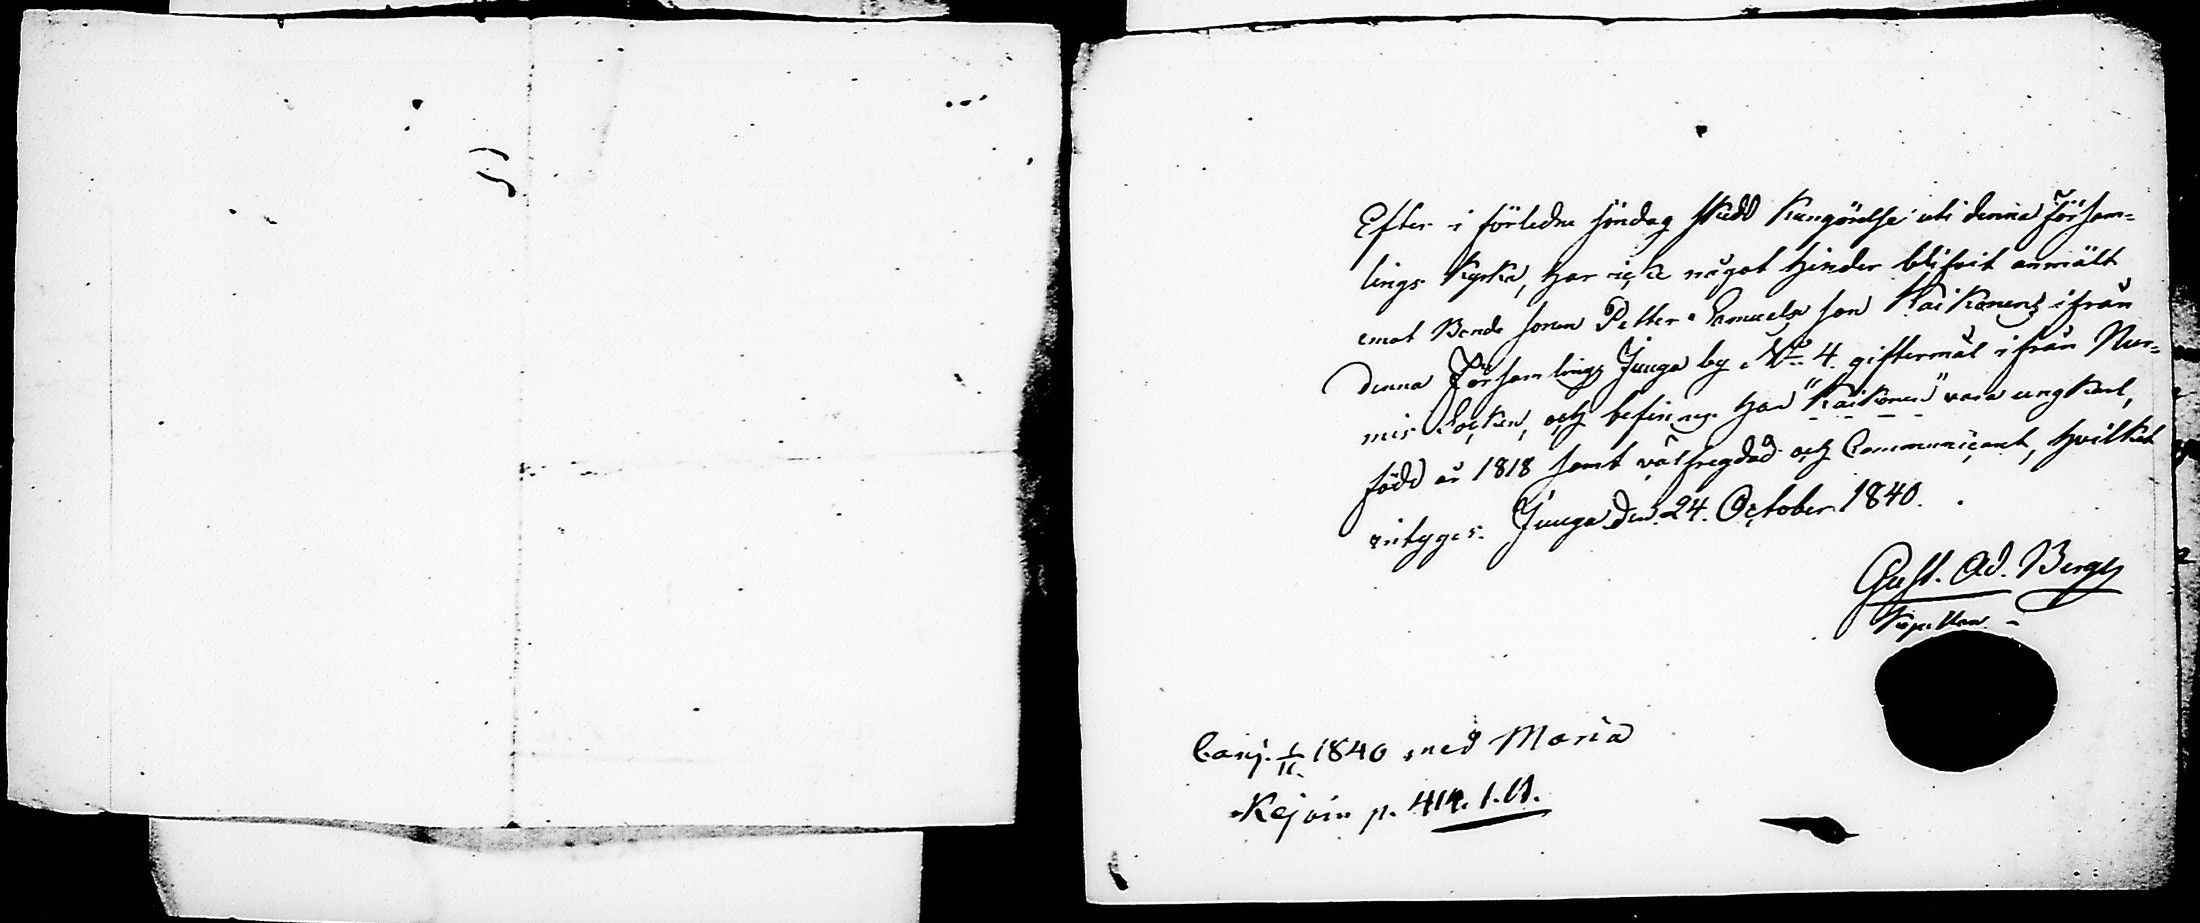 Efter i förledne söndag skedd kungörelse uti denna Försam=
lings Kyrka, har icke något hinder blifvit anmält
emot Bonde sonen Petter Samuelsson Kaikonens ifrån
denna Församlings Juuga by No 4. giftermål ifrån Nur=
mis Socken, och befinnes han "Kaikonen" vara ungkarl,
född år 1818 samt välfregdad och Communicant, hvilket
intyges. Juuga den 24. October 1840.
Gust. Ad. Bergh
Kapellan
Conj. 1/11. 1840 med Maria
p. 414. 1.